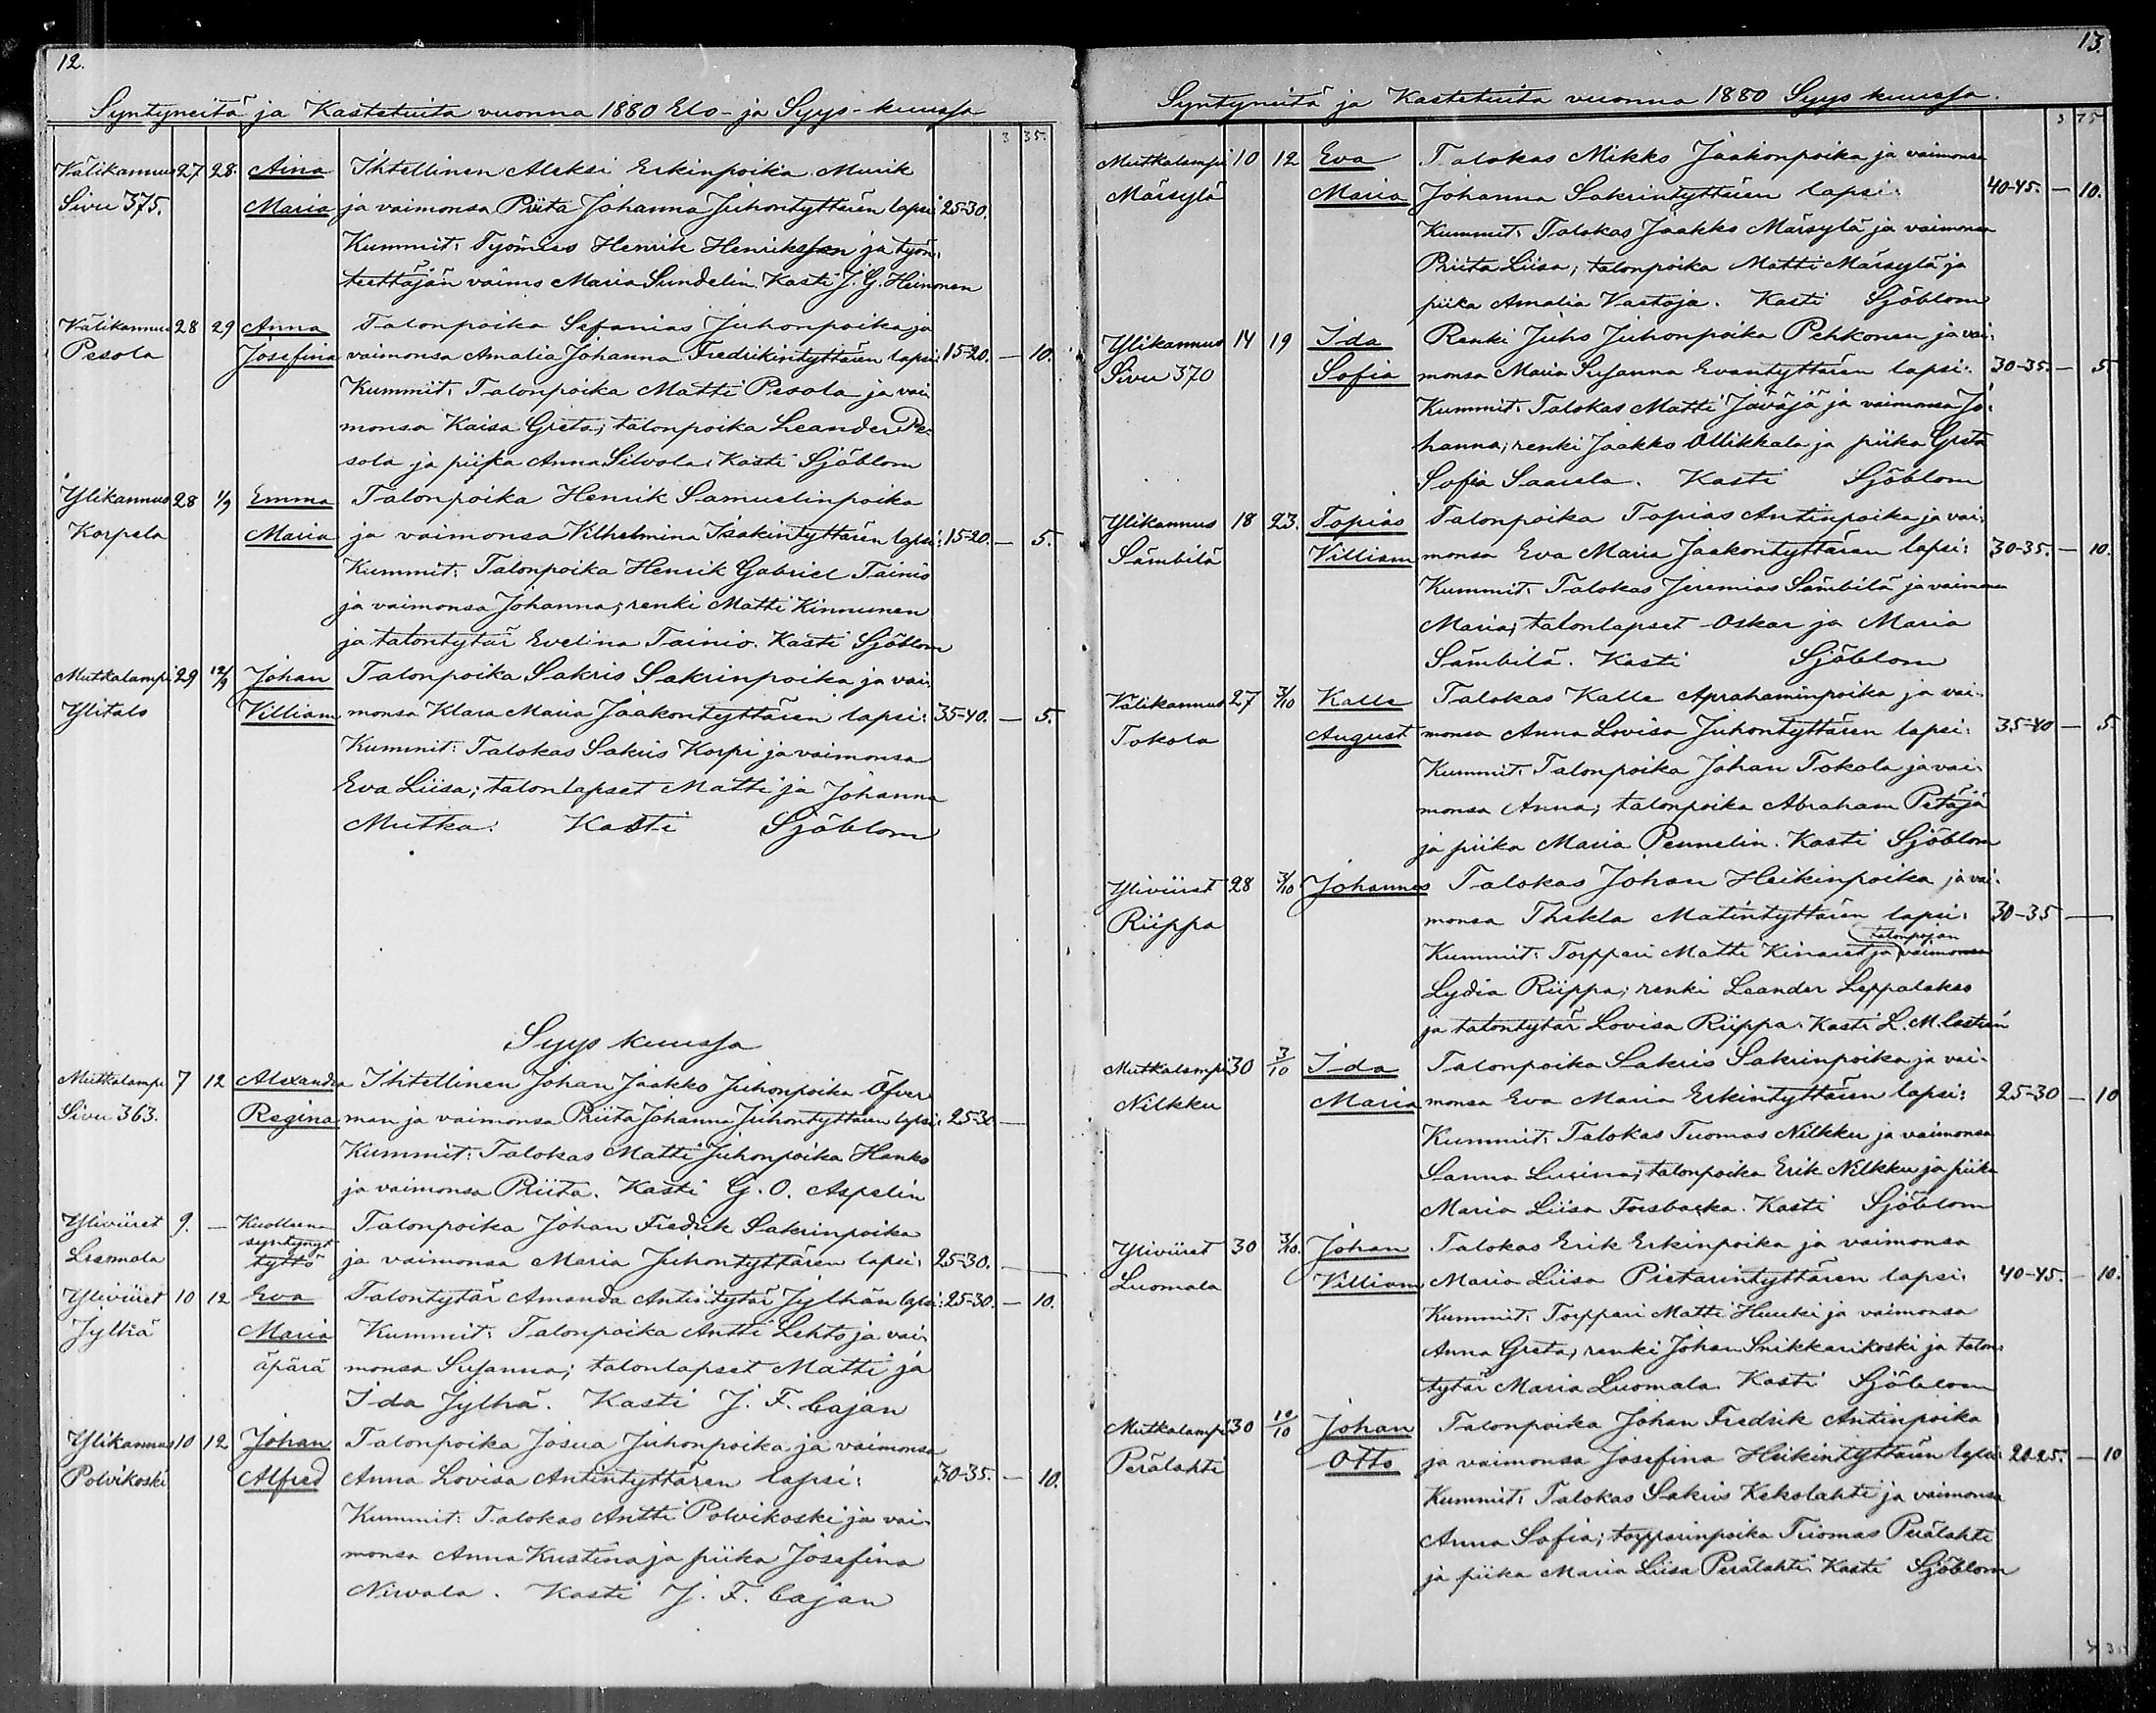 12.
Syntyneitä ja Kastetuita vuonna 1880 Elo- ja Syys-kuussa
3 35.
Välikannus 27 28. Aina Ihtellinen Aleksi Erkinpoika Murik
Sivu 375. Maria ja vaimonsa Priita Johanna Juhontyttären lapsi: 25-30.
Kummit: Työmies Henrik Henriksson ja työn-
teettäjän vaimo Maria Sundelin. Kasti J. G. Heinonen
Välikannus 28 29 Anna Talonpoika Sefanias Juhonpoika ja
Pesola Josefina vaimonsa Amalia Johanna Fredrikintyttären lapsi: 15-20. — 10.
Kummit: Talonpoika Matti Pesola ja vai-
monsa Kaisa Greta; talonpoika Leander Pe-
sola ja piika Anna Silvola. Kasti Sjöblom
Ylikannus 28 1/9 Emma Talonpoika Henrik Samuelinpoika
Korpela Maria ja vaimonsa Vilhelmina Isakintyttären lapsi: 15-20. — 5.
Kummit: Talonpoika Henrik Gabriel Tainio
ja vaimonsa Johanna; renki Matti Kinnunen
ja talontytär Evelina Tainio. Kasti Sjöblom
Mutkalampi 29 12/9 Johan Talonpoika Sakris Sakrinpoika ja vai-
Ylitalo Villiam monsa Klara Maria Jaakontyttären lapsi: 35-40. — 5.
Kummit: Talokas Sakris Korpi ja vaimonsa
Eva Liisa; talonlapset Matti ja Johanna
Mutka. Kasti Sjöblom
Syys kuussa
Mutkalampi 7 12 Alexandra Ihtellinen Johan Jaakko Juhonpoika Öfver
Sivu 363. Regina man ja vaimonsa Priita Johanna Juhontyttären lapsi: 25-30 —
Kummit: Talokas Matti Juhonpoika Hanko
ja vaimonsa Priita. Kasti G. O. Aspelin
Yliviiret 9. — Kuolleena Talonpoika Johan Fredrik Sakrinpoika
syntynyt
tyttö ja vaimonsa Maria Juhontyttären lapsi: 25-30. —
Yliviiret 10 12 Eva Talontytär Amanda Antintytär Jylhän lapsi: 25-30. — 10.
Jylhä Maria Kummit: Talonpoika Antti Lehto ja vai-
äpärä monsa Susanna; talonlapset Matti ja
Ida Jylhä. Kasti J. F. Cajan
Ylikannus 10 12 Johan Talonpoika Josua Juhonpoika ja vaimonsa
Polvikoski Alfred Anna Lovisa Antintyttären lapsi: 30-35. — 10.
Kummit: Talokas Antti Polvikoski ja vai-
monsa Anna Kristina ja piika Josefina
Niwala. Kasti J. F. Cajan
13.
Syntyneitä ja Kastetuita vuonna 1880 Syys kuussa.
3 75
Mutkalampi 10 12 Eva Talokas Mikko Jaakonpoika ja vaimonsa
Märsylä Maria Johanna Sakrintyttären lapsi: 40-45. — 10.
Kummit: Talokas Jaakko Märsylä ja vaimonsa
Priita Liisa; talonpoika Matti Märsylä ja
piika Amalia Kastaja. Kasti Sjöblom
Ylikannus 14 19 Ida Renki Juho Juhonpoika Pehkonen ja vai-
Sivu 370 Sofia monsa Maria Susanna Evantyttären lapsi: 30-35. — 5
Kummit: Talokas Matti Jäväjä ja vaimonsa Jo-
hanna; renki Jaakko Ollikkala ja piika Greta
Sofia Saarela. Kasti Sjöblom
Ylikannus 18 23. Topias Talonpoika Topias Antinpoika ja vai-
Sämbilä Villiam monsa Eva Maria Jaakontyttären lapsi: 30-35. — 10.
Kummit: Talokas Jeremias Sämbilä ja vaimonsa
Maria; talonlapset Oskar ja Maria
Sämbilä. Kasti Sjöblom
Välikannus 27 3/10 Kalle Talokas Kalle Aprahaminpoika ja vai-
Tokola August monsa Anna Lovisa Juhontyttären lapsi: 35-40 — 5.
Kummit: Talonpoika Johan Tokola ja vai-
monsa Anna; talonpoika Abraham Petäjä
ja piika Maria Pennelin. Kasti Sjöblom
Yliviiret 28 3/10 Johannes Talokas Johan Heikinpoika ja vai-
Riippa monsa Thekla Matintyttären lapsi: 30-35 —
talonpojan
Kummit: Torppari Matti Kinaret ja vaimonsa
Lydia Riippa; renki Leander Leppalakso
ja talontytär Lovisa Riippa. Kasti L. M. Castrén
Mutkalampi 30 3/10 Ida Talonpoika Sakris Sakrinpoika ja vai-
Nilkku Maria monsa Eva Maria Erkintyttären lapsi: 25-30 — 10
Kummit: Talokas Tuomas Nilkku ja vaimonsa
Sanna Lusina; talonpoika Erik Nilkku ja piika
Maria Liisa Forsbacka. Kasti Sjöblom
Yliviiret 30 3/10. Johan Talokas Erik Erkinpoika ja vaimonsa
Luomala Villiam Maria Liisa Pietarintyttären lapsi: 40-45. — 10.
Kummit: Torppari Matti Huuki ja vaimonsa
Anna Greta; renki Johan Snikkarikoski ja talon-
tytär Maria Luomala. Kasti Sjöblom
Mutkalampi 30 10/10 Johan Talonpoika Johan Fredrik Antinpoika
Perälahti Otto ja vaimonsa Josefina Heikintyttären lapsi: 20-25. — 10
Kummit: Talokas Sakris Kekolahti ja vaimonsa
Anna Sofia; torpparinpoika Tuomas Perälahti
ja piika Maria Liisa Perälahti. Kasti Sjöblom